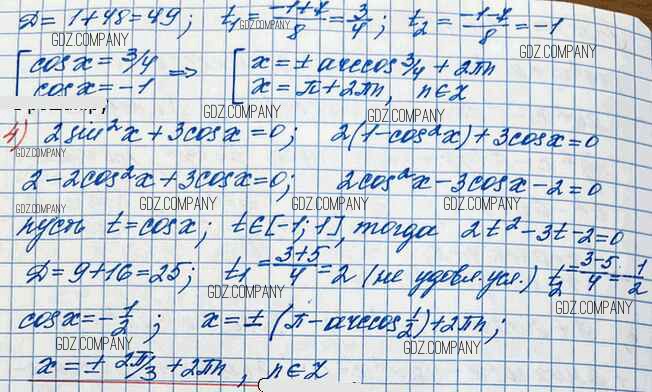 D = 1+48 = 49; t₁ = (-1+7)/8 = 3/4; t₂ = (-1-7)/8 = -1
GDZ.COMPANY GDZ.COMPANY GDZ.COMPANY
[ cos x = 3/4 => [ x = ± arccos 3/4 + 2πn
cos x = -1 x = π + 2πn, n∈Z
GDZ.COMPANY GDZ.COMPANY GDZ.COMPANY
4) 2sin²x + 3cosx = 0; 2(1-cos²x) + 3cosx = 0
GDZ.COMPANY GDZ.COMPANY
2 - 2cos²x + 3cosx = 0; 2cos²x - 3cosx - 2 = 0
GDZ.COMPANY GDZ.COMPANY GDZ.COMPANY GDZ.COMPANY
пусть t = cosx; t∈[-1; 1], тогда 2t² - 3t - 2 = 0
D = 9+16 = 25; t₁ = (3+5)/4 = 2 (не удовл. усл.) t₂ = (3-5)/4 = -1/2
GDZ.COMPANY GDZ.COMPANY
cosx = -1/2; x = ± (π - arccos 1/2) + 2πn;
GDZ.COMPANY GDZ.COMPANY
x = ± 2π/3 + 2πn, n∈Z